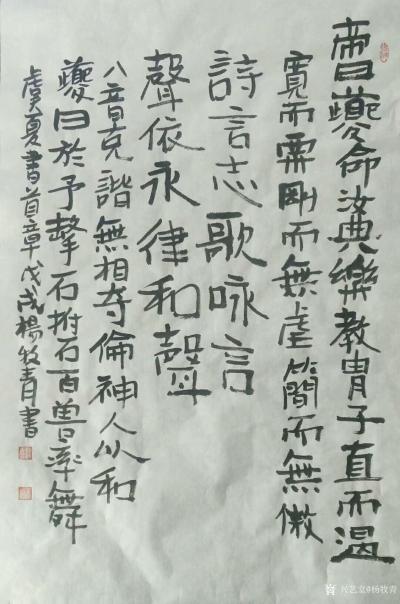 帝曰夔命汝典樂教胄子直而温
寬而栗剛而無虐簡而無傲
詩言志歌咏言
聲依永律和聲
八音克諧無相夺倫神人以和
夔曰於予擊石拊石百兽率舞
虞夏書首章戊戌楊牧青書